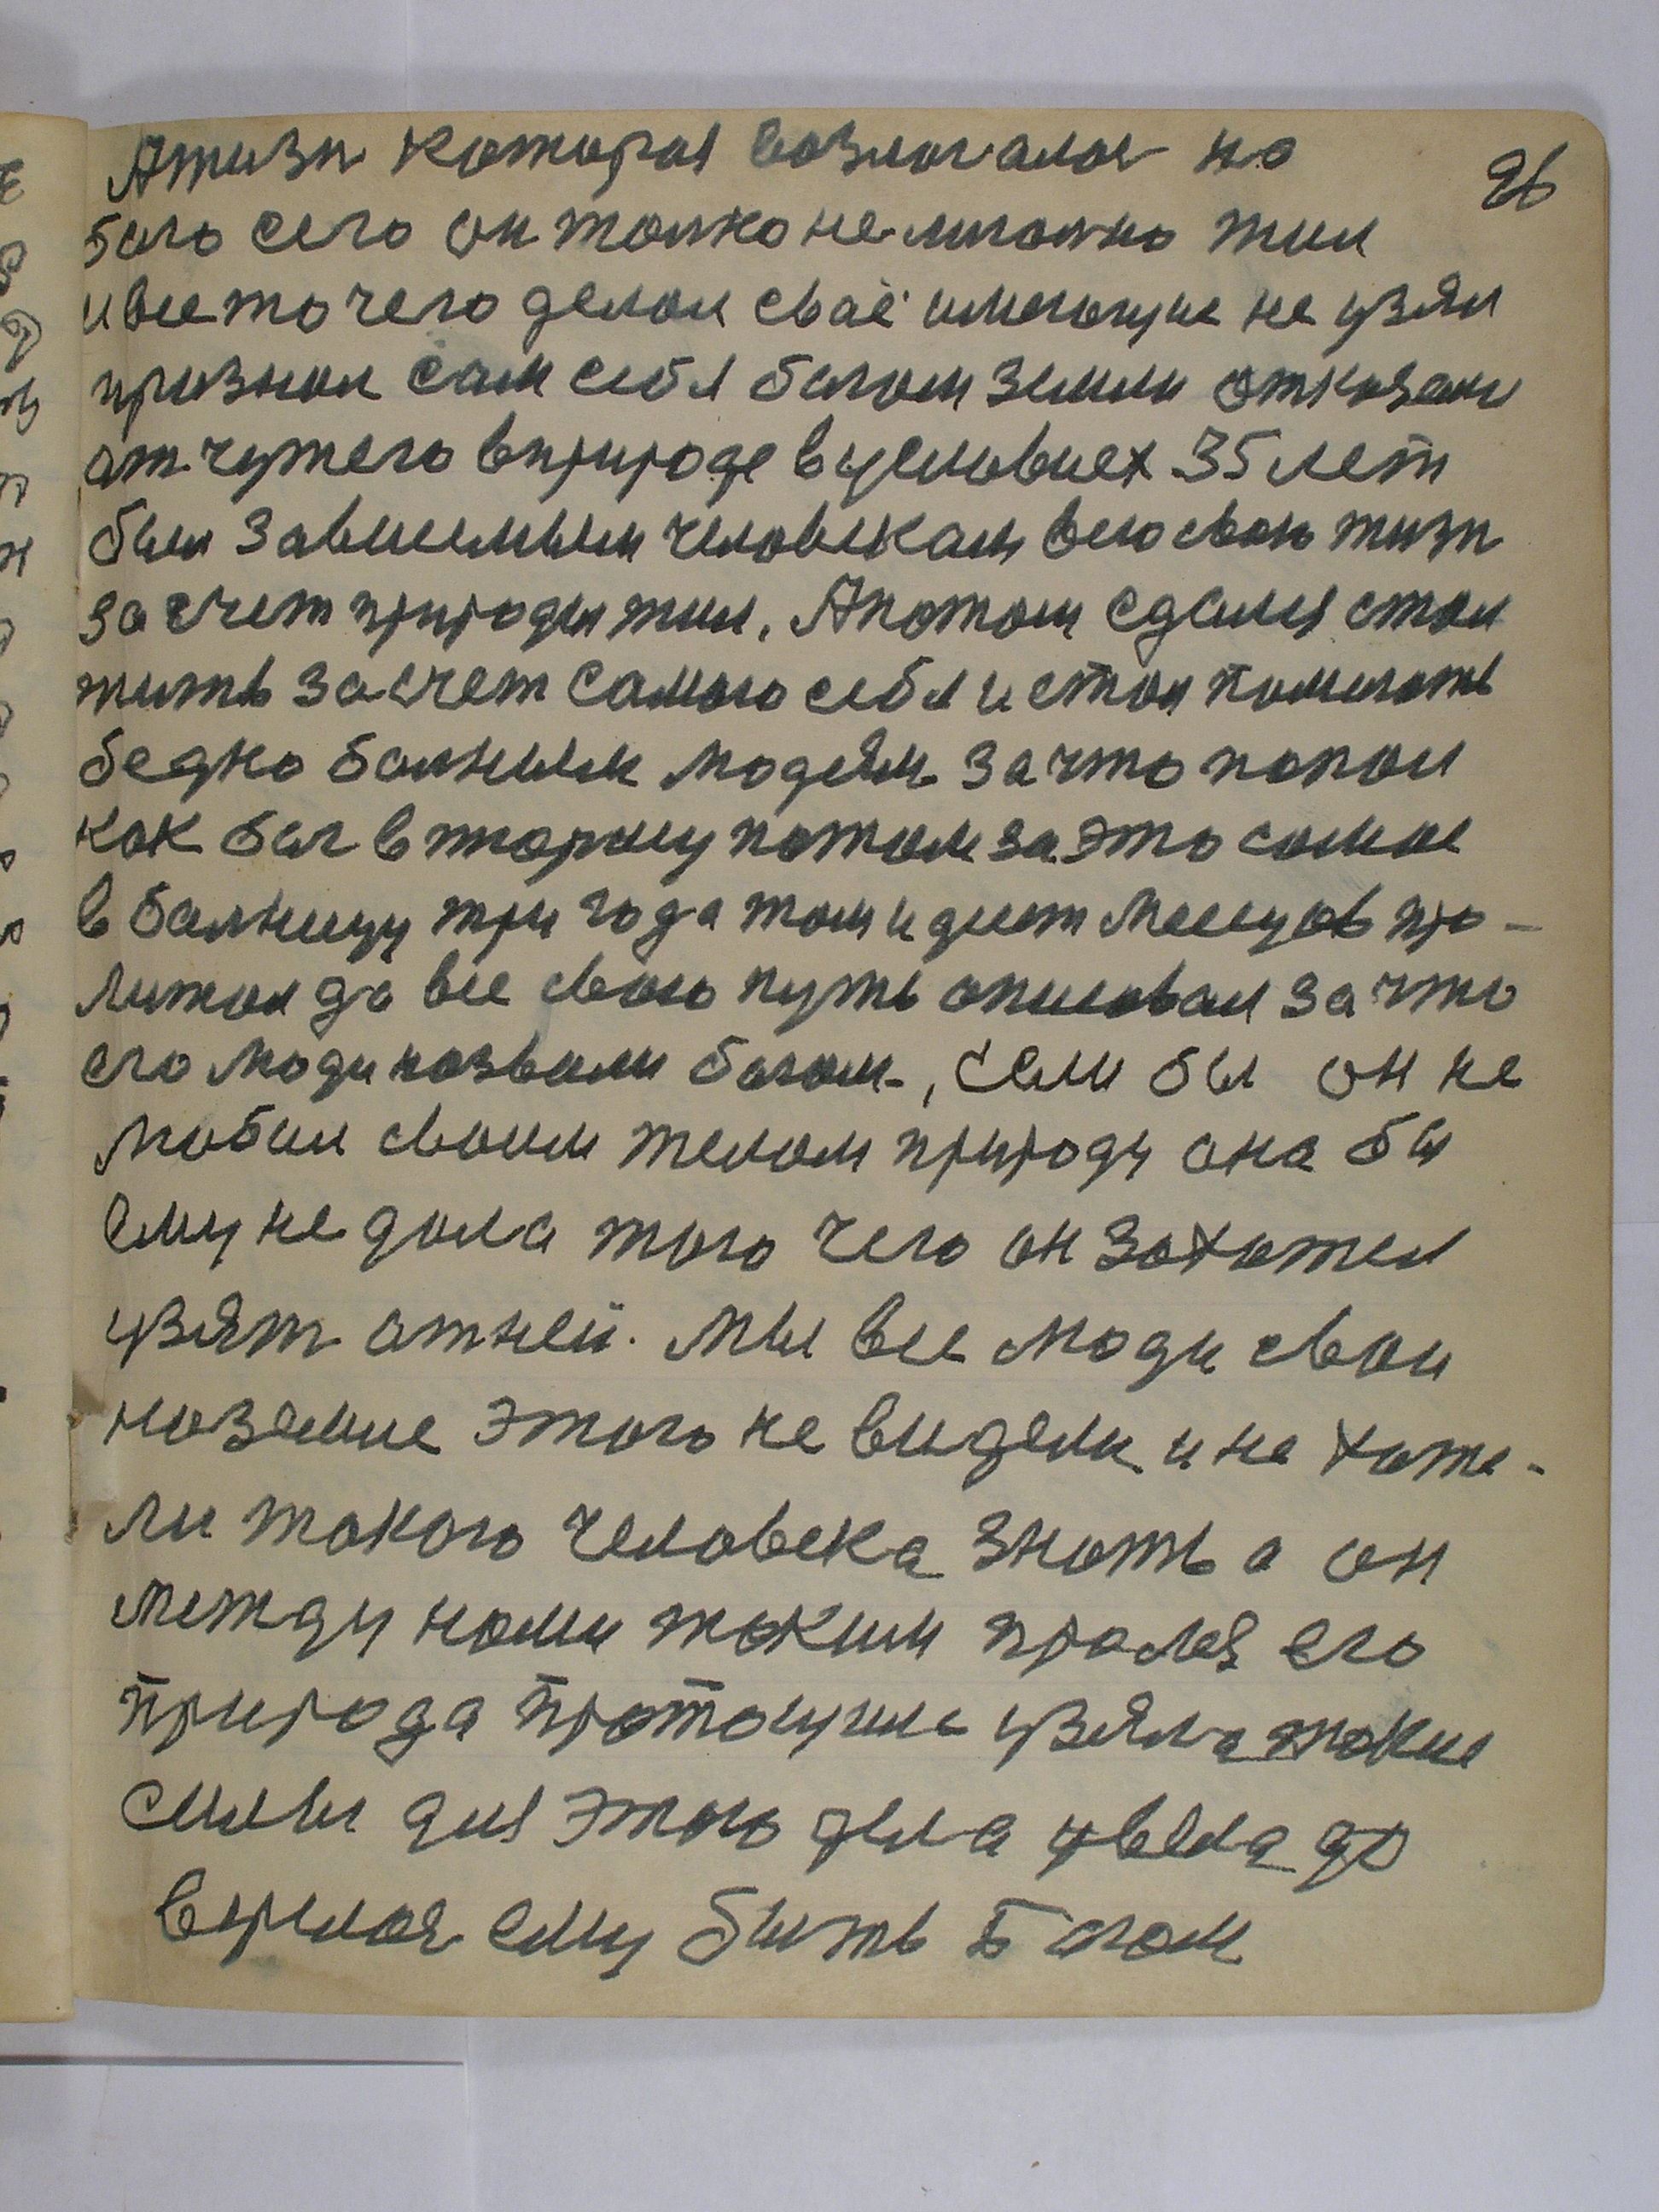 Ажизн которая возлогалос на 96
бога сего он только нелигално жил
и все то чего делал сваё имеющие не узял
признал сам себя богом земли отказалс
ат чужего в природе в условиех 35 лет
был зависемым человекам всю свою жизн
за счет природы жил. А потом сдался стал
жить за счет самого себя и стал помогать
бедно болным людям за что попал
как бог в тюрму потом за это самое
в болницу три года там и дает месецов про-
лижал да все свою путь описовал за что
его люди назвали богом, если бы он не
любил своим телом природу она бы
ему не дала того чего он захотел
узят от ней. Мы все люди свои
на земле этого не видели и не хоте-
ли такого человека знать а он
между нами таким
его
природа
узяла такие
силы для этого дела
да
верилас ему быть Богом